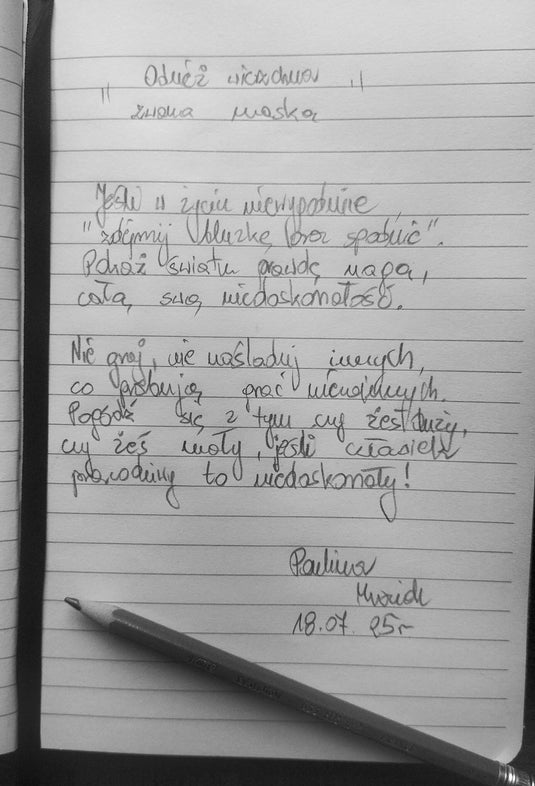 " Odłóż wieczną "
znaną maskę
Jeśli w życiu niewygodnie,
"zdejmij bluzkę oraz spodnie".
Pokaż światu prawdę nagą,
całą swą niedoskonałość.
Nie graj, nie naśladuj innych,
co próbują grać niewinnych.
Pogódź się z tym czy żeś duży,
czy żeś mały, jeśli człowiek
prawdziwy to niedoskonały!
Paulina
18.07. 25r